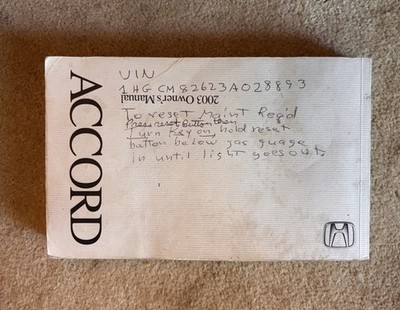 VIN
1HGCM82623A028893
2003 Owner's Manual
To reset Maint Req'd
Press reset Button, then
Turn key on, hold reset
button below gas guage
in until light goes out.
ACCORD